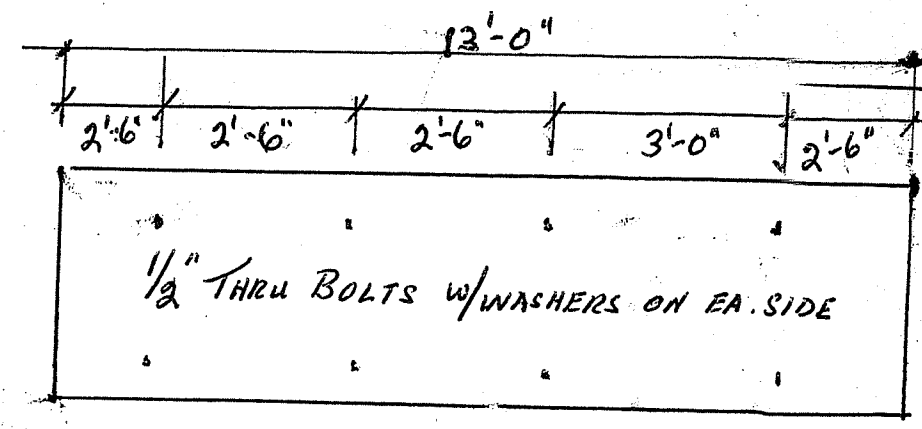 13'-0"
2'-6" 2'-6" 2'-6" 3'-0" 2'-6"
1/2" THRU BOLTS W/WASHERS ON EA. SIDE